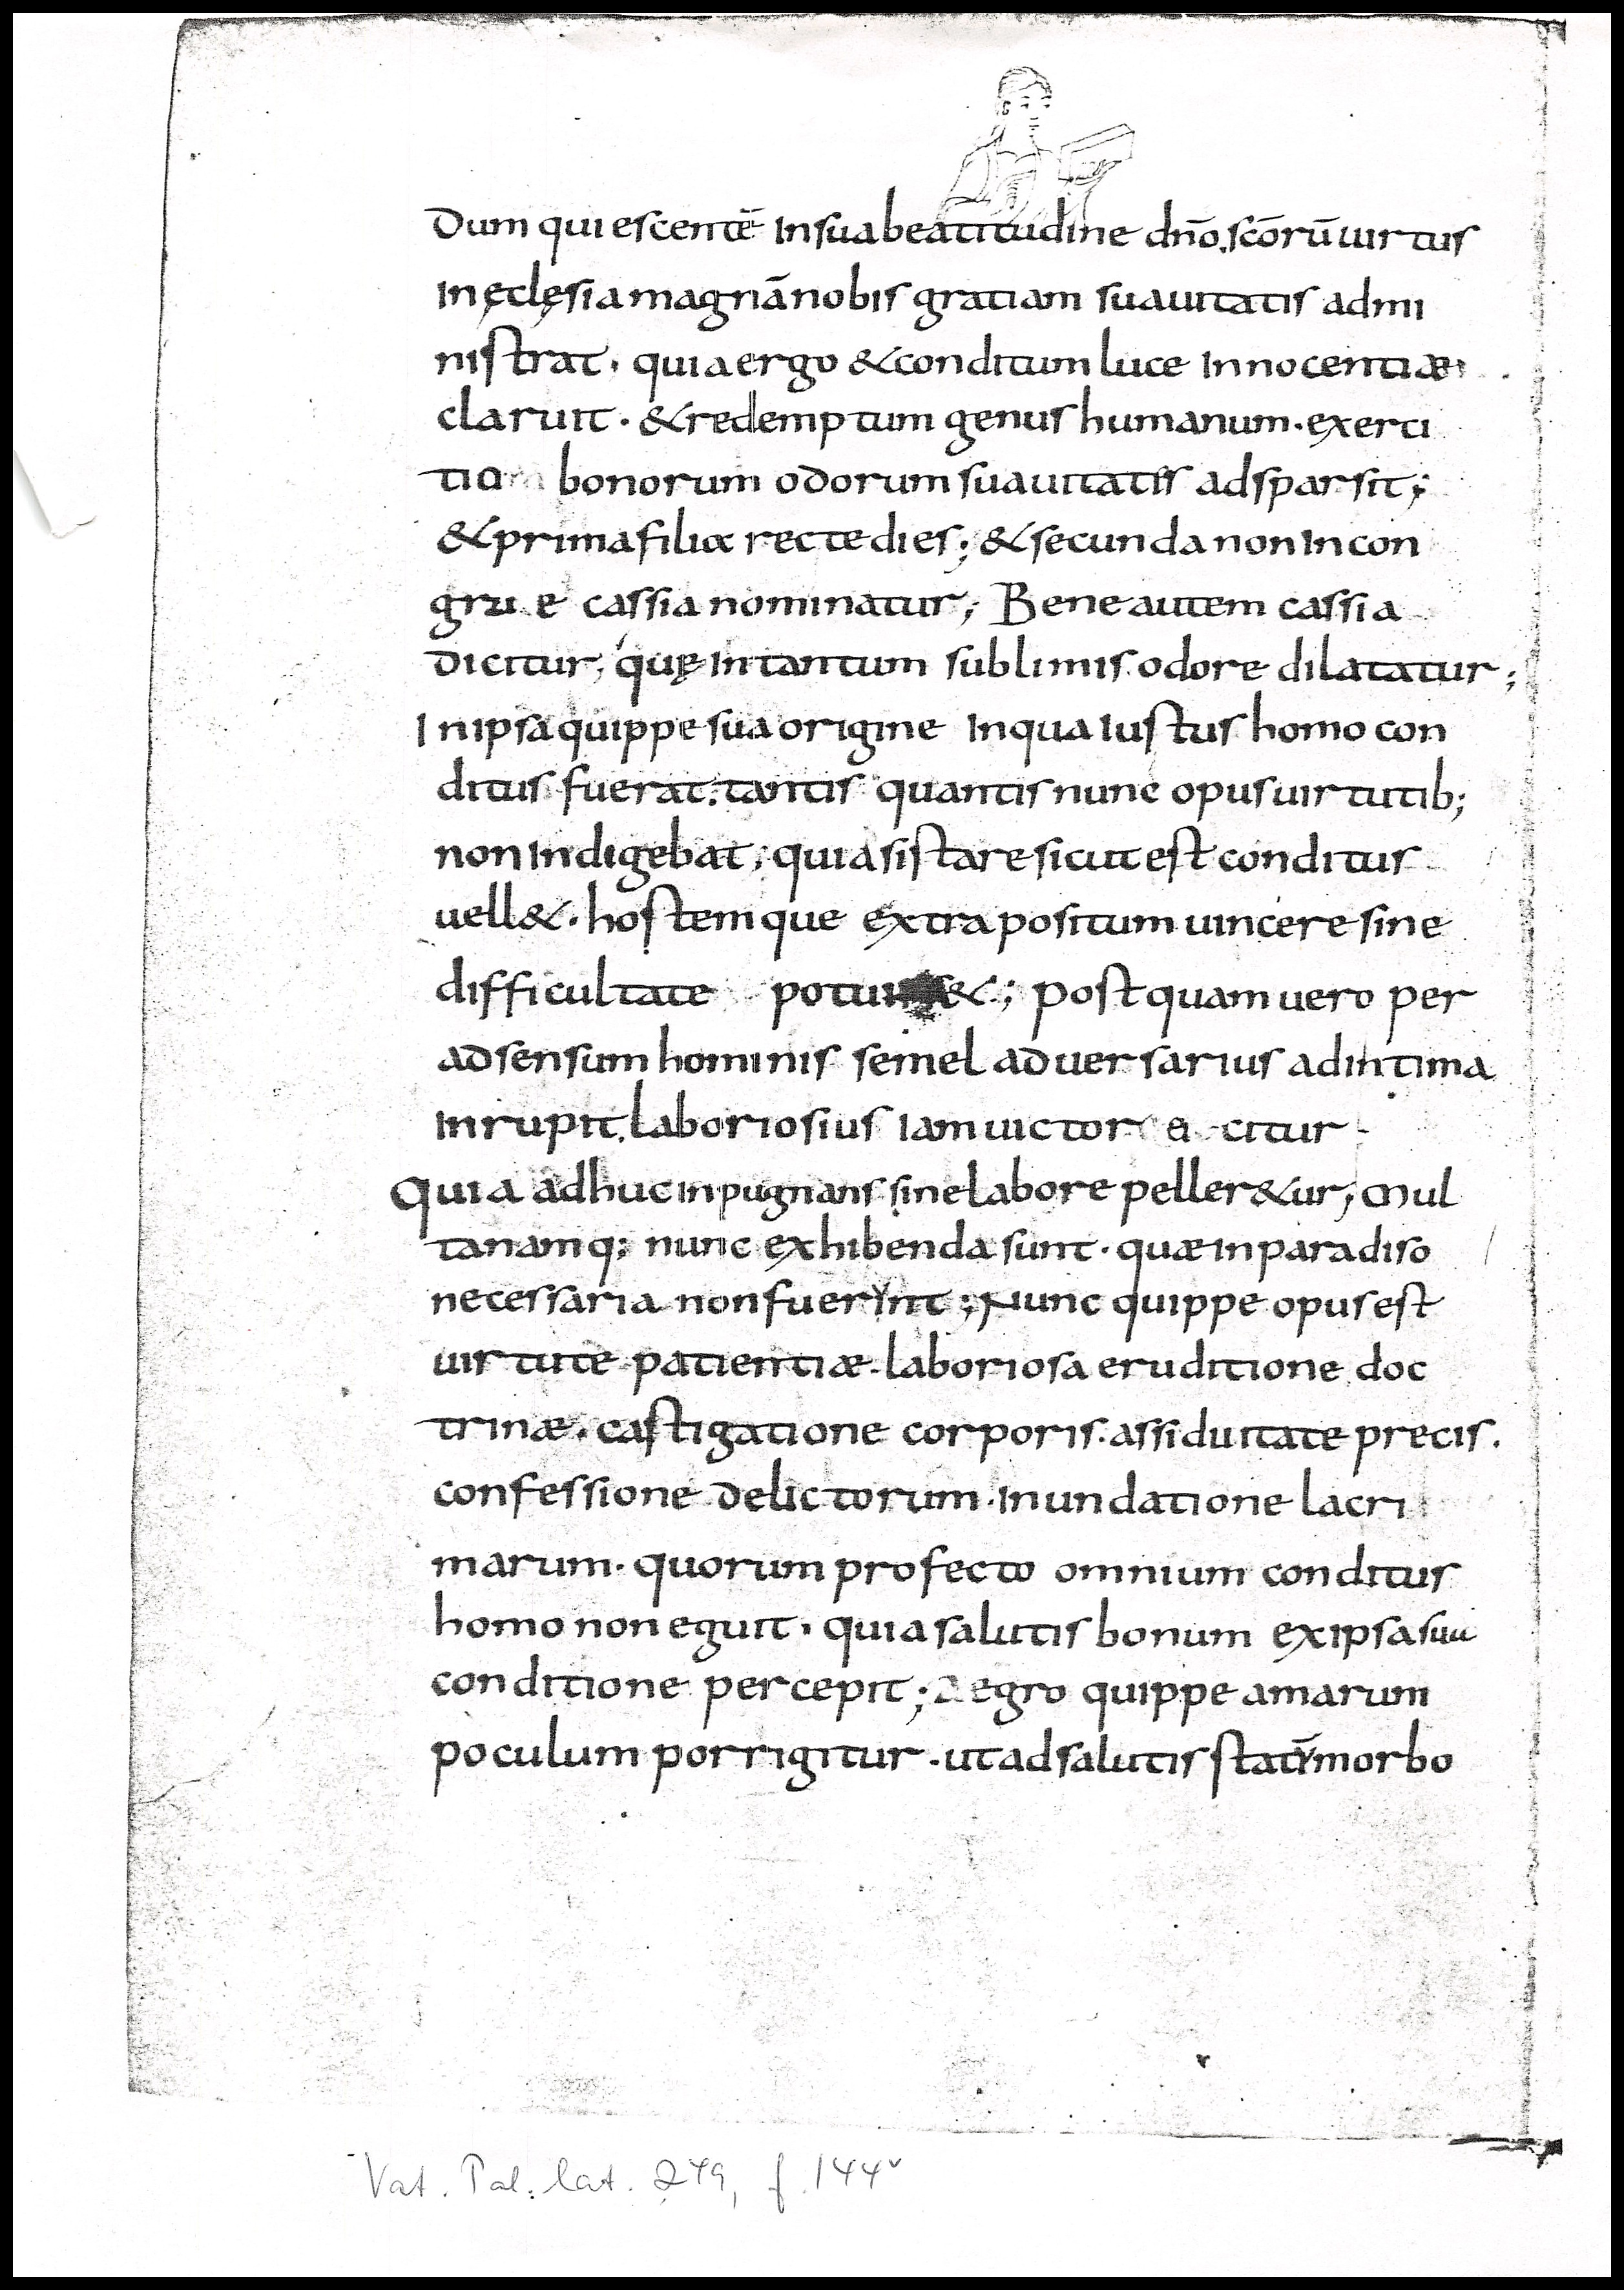 Dum quiescentē in sua beatitudine dn̄o. sc̄orū uirtus
in ęclęsia magnā nobis gratiam suauitatis admi
nistrat· quia ergo & conditum luce innocentiae
claruit· & redemptum genus humanum· exerci
tio bonorum odorum suauitatis adsparsit;
& prima filia recte dies; & secunda non incon
grue cassia nominatur; Bene autem cassia
dicitur, quę in tantum sublimis odore dilatatur;
In ipsa quippe sua origine in qua iustus homo con
ditus fuerat. tantis quantis nunc opus uirtutib;
non indigebat; quia si stare sicut est conditus
uell&· hostemque extra positum uincere sine
difficultate &; postquam uero per
adsensum hominis semel aduersarius ad intima
inrupit, laboriosius iam uictor citur
Quia adhuc inpugnans sine labore peller&ur; Mul
ta namq; nunc exhibenda sunt· quae in paradiso
necessaria non fuerint; Nunc quippe opus est
uirtute patientiae. laboriosa eruditione doc
trinae. castigatione corporis. assiduitate precis.
confessione delictorum· inundatione lacri
marum· quorum profecto omnium conditus
homo non eguit· quia salutis bonum ex ipsa sua
conditione percepit; Aegro quippe amarum
poculum porrigitur· ut ad salutis statū morbo
Vat. Pal. lat. 249, f. 144v